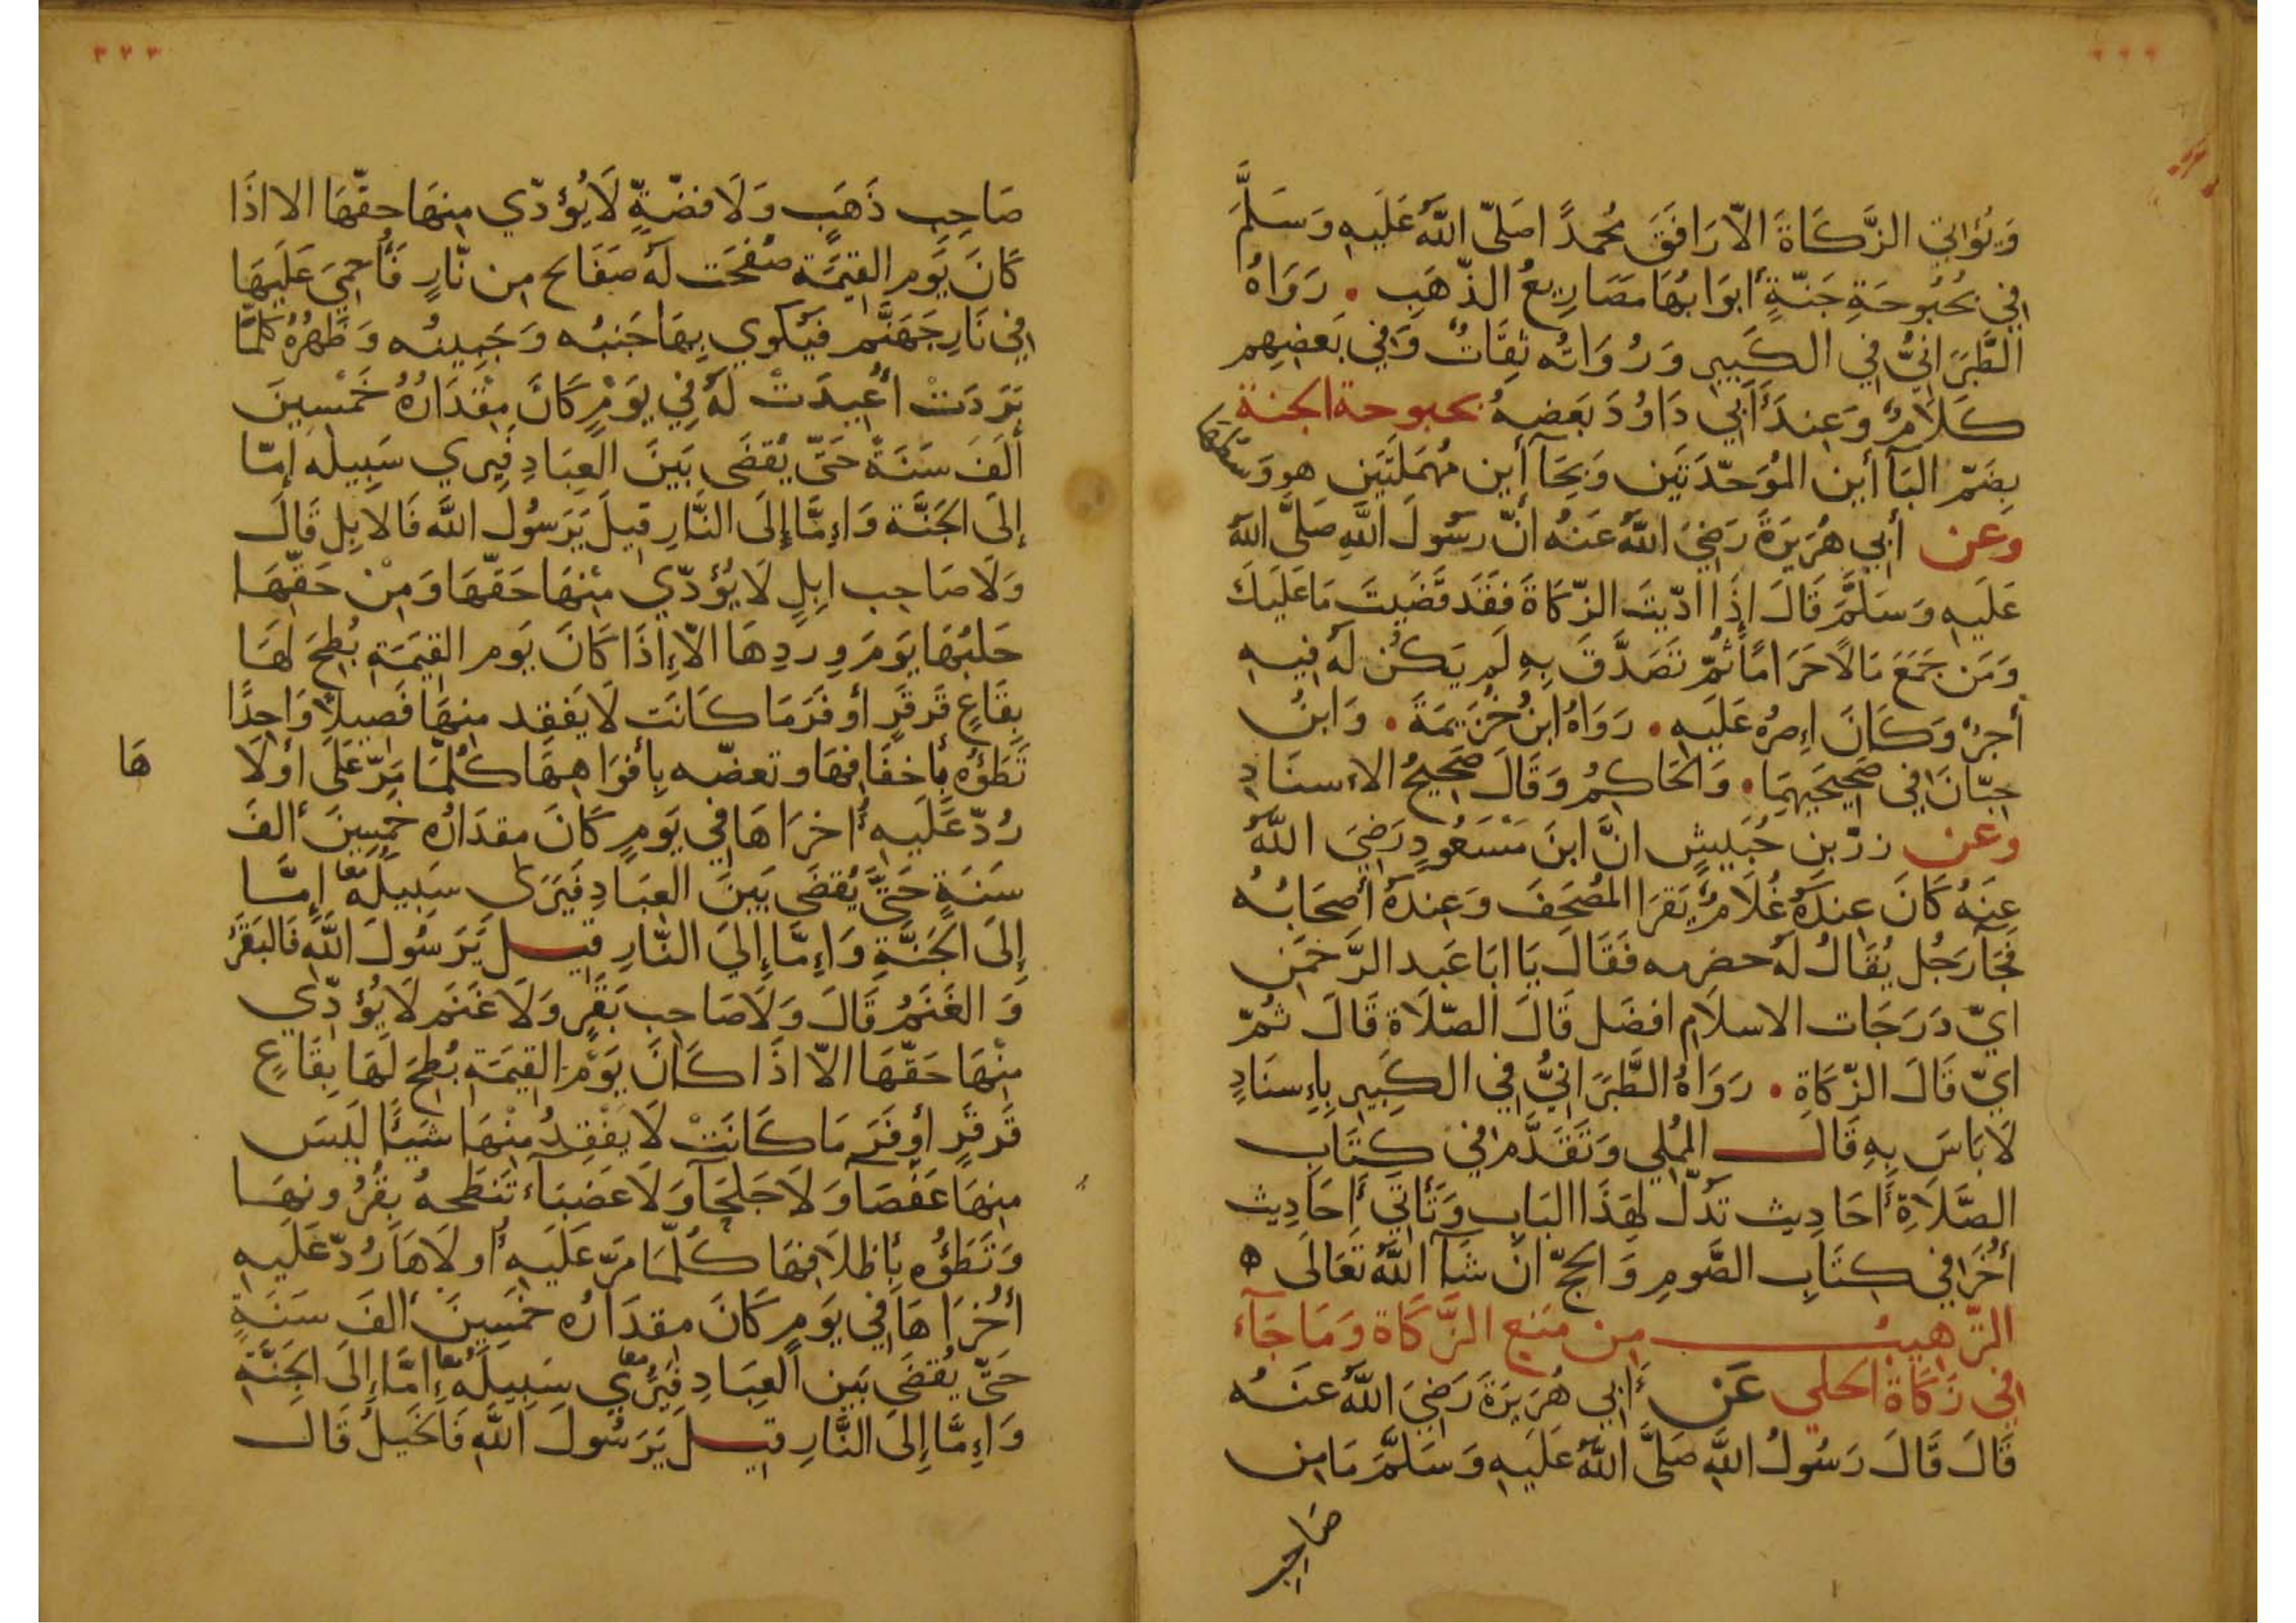 وَيُؤاتي الزَّكَاةَ الاّ رَافَقَ مُحمدًا صَلّى اللّهُ عَلَيهِ وَسَلَّمَ
في بُحْبُوحَةِ جَنّةٍ أَبوَابُهَا مَصَارِيعُ الذّهَبِ . رَوَاهُ
الطَّبَرَانيُّ في الكَبيرِ وَرُوَاتُه ثِقَاتٌ وَفي بَعضِهِم
كَلاَمٌ وَعِندَ أَبي دَاوُدَ بَعضهُ بحبوحة الجنة
بِضَمّ البَآ أين المُوَحّدَتَين وَبِحَآ أين مُهمَلتَين هو وَسَطهَا
وعن أبي هُرَيرَةَ رَضِيَ اللّهُ عَنهُ انّ رسُولَ اللّهِ صَلَّى اللّهُ
عَلَيهِ وَسَلَّمَ قَالَ إذَا ادّيتَ الزّكَاةَ فقَد قَضَيتَ مَا عَلَيكَ
وَمَن جَمَعَ مَالاً حَرَامًا ثُمّ تَصَدَّقَ بِهِ لَم يَكُن لَهُ فِيهِ
أجرٌ وَكَانَ إصرُه عَلَيهِ . رَوَاهُ ابنُ خُزَيمَةَ . وَابنُ
حِبّانَ في صَحِيحَيهِمَا . وَالحَاكِمُ وَقَالَ صَحِيحُ الاسنَادِ
وعن زرّ بن حُبَيشٍ انَّ ابنَ مَسْعُودٍ رَضِيَ اللّهُ
عنهُ كَانَ عِندَهُ غُلاَمٌ يَقرَا المُصحَفَ وَعِندَهُ أصحَابُهُ
فَجَآ رَجُل يُقَالُ لَهُ حضرمه فَقَالَ يَا ابَا عَبد الرَّحمَن
ايّ دَرَجَات الاسلاَم افضَل قَالَ الصّلاَة قَالَ ثُمّ
ايّ قَالَ الزّكَاةِ . رَوَاهُ الطَّبَرَانيُّ في الكَبيرِ بِإسنَادٍ
لاَ بَاسَ بِهِ قَالَ المُملِي وَتَقَدَّم في كِتَابِ
الصَّلاَةِ أَحَادِيث تَدُلّ لهَذَا البَابِ وَتَأتَي أَحَادِيث
أُخَرَ في كِتَابِ الصَّومِ وَالحَجّ ان شَآ اللّهُ تَعَالَى ه
التّرهيبُ من مَنعِ الزَّكَاة وَمَا جَآءَ
في زَكَاةَ الحلي عَنْ أبي هُرَيرَةَ رَضِيَ اللّهُ عَنهُ
قَالَ قَالَ رَسُولُ اللّهِ صَلَّى اللّهُ عَلَيهِ وَسَلَّمَ مَا مِن
صَاحِبِ
٣٢٣
صَاحِبِ ذَهَبٍ وَلاَ فضّةٍ لاَ يُؤدّي منهَا حقّهَا الا اذَا
كَانَ يَوم القيمَة صُفِّحَت لَهُ صَفَائح من نّارٍ فَأُحمِيَ عَلَيهَا
في نَارِ جَهَنَّم فيَكوي بِهَا جَنبُه وَجَبِينُه وَظَهرُهُ كلَّمَا
بَرَدَتْ أُعِيدَتْ لَهُ فِي يَوْمٍ كَانَ مِقْدَارُهُ خَمْسِينَ
أَلَفَ سَنَةً حَتّى يُقضَى بَينَ العِبَادِ فيري سَبِيلَه إمّا
إلَى الجَنَّة وَإمَّا إلَى النَّارِ قيلَ يَرَسُولَ اللَّه فَالابِل قَالَ
وَلاَ صَاحِب إبِلٍ لاَ يُؤدّي مِنْهَا حَقّهَا وَمِنْ حَقِّهَا
حَلبُهَا يَومَ وِردِهَا الاّ إذَا كَانَ يَوم القيمَةِ بُطِحَ لَهَا
بِقَاعٍ قَرقَرٍ أوفَرَ مَا كَانَت لاَ يَفقِد منهَا فَصِيلاً وَاحِدًا
تَطَؤُه بأخفَافهَا وتعضّه بِأفوَاهِهَا كُلّمَا مَرّ عَلَى أولاَ هَا
رُدّ عَلَيهِ أُخرَاهَا في يَومٍ كَانَ مقدَارُه خَمسِينَ ألفَ
سَنَةٍ حَتَّى يُقضَى بَينَ العِبَادِ فَيَرَى سَبِيلَهُ معا إمَّا
إلَى الجَنَّةِ وَإمَّا إلَى النّارِ قيل يَرَسُولَ اللَّهِ فَالبَقَرُ
وَالغَنَمُ قَالَ وَلاَ صَاحِب بَقَرٍ وَلاَ غَنَمٍ لاَ يُؤدّي
مِنْهَا حَقّهَا الاّ اذَا كَانَ يَوْمَ القِيمَةِ بُطِحَ لَهَا بِقَاعٍ
قَرقَرٍ أوفَرَ مَا كَانَتْ لاَ يَفْقِدُ مِنْهَا شَيئًا لَيسَ
منهَا عَقْصَآ وَلاَ جَلحَآ وَلاَ عَضبَآءُ تَنطَحهُ بِقُرُونهَا
وَتَطَؤُه بِأظلاَفهَا كُلّمَا مَرّ عَلَيهِ أُولاَهَا رُدّ عَلَيهِ
أُخْرَاهَا في يَومٍ كَانَ مقدَارُه خمَسِينَ ألفَ سَنَةٍ
حَتَّى يُقضَى بَين العِبَادِ فَيَرَي معا سَبِيلَهُ معا إمَّا إلَى الجَنَّةِ
وَإمَّا إلَى النَّارِ قيل يَرَسُولَ اللَّهِ فَالخَيلُ قَالَ